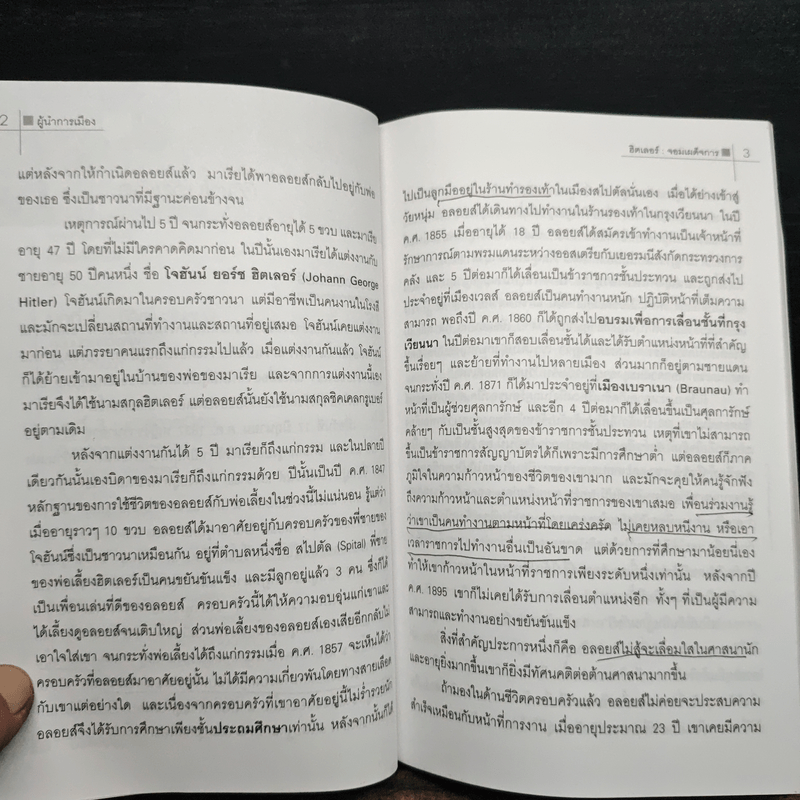 2 ผู้นำการเมือง
แต่หลังจากให้กำเนิดอลอยส์แล้ว มาเรียได้พาอลอยส์กลับไปอยู่กับพ่อ
ของเธอ ซึ่งเป็นชาวนาที่มีฐานะค่อนข้างจน
เหตุการณ์ผ่านไป 5 ปี จนกระทั่งอลอยส์อายุได้ 5 ขวบ และมาเรีย
อายุ 47 ปี โดยที่ไม่มีใครคาดคิดมาก่อน ในปีนั้นเองมาเรียได้แต่งงานกับ
ชายอายุ 50 ปีคนหนึ่ง ชื่อ โจฮันน์ ยอร์ช ฮิตเลอร์ (Johann George
Hitler) โจฮันน์เกิดมาในครอบครัวชาวนา แต่มีอาชีพเป็นคนงานในโรงสี
และมักจะเปลี่ยนสถานที่ทำงานและสถานที่อยู่เสมอ โจฮันน์เคยแต่งงาน
มาก่อน แต่ภรรยาคนแรกถึงแก่กรรมไปแล้ว เมื่อแต่งงานกันแล้ว โจฮันน์
ก็ได้ย้ายเข้ามาอยู่ในบ้านของพ่อของมาเรีย และจากการแต่งงานนี้เอง
มาเรียจึงได้ใช้นามสกุลฮิตเลอร์ แต่อลอยส์นั้นยังใช้นามสกุลชิคเคลกรูเบอร์
อยู่ตามเดิม
หลังจากแต่งงานกันได้ 5 ปี มาเรียก็ถึงแก่กรรม และในปลายปี
เดียวกันนั้นเองบิดาของมาเรียก็ถึงแก่กรรมด้วย ปีนั้นเป็นปี ค.ศ. 1847
หลักฐานของการใช้ชีวิตของอลอยส์กับพ่อเลี้ยงในช่วงนี้ไม่แน่นอน รู้แต่ว่า
เมื่ออายุราวๆ 10 ขวบ อลอยส์ได้มาอาศัยอยู่กับครอบครัวของพี่ชายของ
โจฮันน์ซึ่งเป็นชาวนาเหมือนกัน อยู่ที่ตำบลหนึ่งชื่อ สไปตัล (Spital) พี่ชาย
ของพ่อเลี้ยงฮิตเลอร์เป็นคนขยันขันแข็ง และมีลูกอยู่แล้ว 3 คน ซึ่งก็ได้
เป็นเพื่อนเล่นที่ดีของอลอยส์ ครอบครัวนี้ได้ให้ความอบอุ่นแก่เขาและ
ได้เลี้ยงดูอลอยส์จนเติบใหญ่ ส่วนพ่อเลี้ยงของอลอยส์เองเสียอีกกลับไม่
เอาใจใส่เขา จนกระทั่งพ่อเลี้ยงได้ถึงแก่กรรมเมื่อ ค.ศ. 1857 จะเห็นได้ว่า
ครอบครัวที่อลอยส์มาอาศัยอยู่นั้น ไม่ได้มีความเกี่ยวพันโดยทางสายเลือด
กับเขาแต่อย่างใด และเนื่องจากครอบครัวที่เขาอาศัยอยู่นี้ไม่ร่ำรวยนัก
อลอยส์จึงได้รับการศึกษาเพียงชั้นประถมศึกษาเท่านั้น หลังจากนั้นก็ได้
ฮิตเลอร์ : จอมเผด็จการ 3
ไปเป็นลูกมืออยู่ในร้านทำรองเท้าในเมืองสไปตัลนั่นเอง เมื่อได้ย่างเข้าสู่
วัยหนุ่ม อลอยส์ได้เดินทางไปทำงานในร้านรองเท้าในกรุงเวียนนา ในปี
ค.ศ. 1855 เมื่ออายุได้ 18 ปี อลอยส์ได้สมัครเข้าทำงานเป็นเจ้าหน้าที่
รักษาการณ์ตามพรมแดนระหว่างออสเตรียกับเยอรมนีสังกัดกระทรวงการ
คลัง และ 5 ปีต่อมาก็ได้เลื่อนเป็นข้าราชการชั้นประทวน และถูกส่งไป
ประจำอยู่ที่เมืองเวลส์ อลอยส์เป็นคนทำงานหนัก ปฏิบัติหน้าที่เต็มความ
สามารถ พอถึงปี ค.ศ. 1860 ก็ได้ถูกส่งไปอบรมเพื่อการเลื่อนชั้นที่กรุง
เวียนนา ในปีต่อมาเขาก็สอบเลื่อนชั้นได้และได้รับตำแหน่งหน้าที่ที่สำคัญ
ขึ้นเรื่อยๆ และย้ายที่ทำงานไปหลายเมือง ส่วนมากก็อยู่ตามชายแดน
จนกระทั่งปี ค.ศ. 1871 ก็ได้มาประจำอยู่ที่เมืองเบราเนา (Braunau) ทำ
หน้าที่เป็นผู้ช่วยศุลการักษ์ และอีก 4 ปีต่อมาก็ได้เลื่อนขึ้นเป็นศุลการักษ์
คล้ายๆ กับเป็นชั้นสูงสุดของข้าราชการชั้นประทวน เหตุที่เขาไม่สามารถ
ขึ้นเป็นข้าราชการสัญญาบัตรได้ก็เพราะมีการศึกษาต่ำ แต่อลอยส์ก็ภาค
ภูมิใจในความก้าวหน้าของชีวิตของเขามาก และมักจะคุยให้คนรู้จักฟัง
ถึงความก้าวหน้าและตำแหน่งหน้าที่ราชการของเขาเสมอ เพื่อนร่วมงานรู้
ว่าเขาเป็นคนทำงานตามหน้าที่โดยเคร่งครัด ไม่เคยหลบหนีงาน หรือเอา
เวลาราชการไปทำงานอื่นเป็นอันขาด แต่ด้วยการที่ศึกษามาน้อยนี่เอง
ทำให้เขาก้าวหน้าในหน้าที่ราชการเพียงระดับหนึ่งเท่านั้น หลังจากปี
ค.ศ. 1895 เขาก็ไม่เคยได้รับการเลื่อนตำแหน่งอีก ทั้งๆ ที่เป็นผู้มีความ
สามารถและทำงานอย่างขยันขันแข็ง
สิ่งที่สำคัญประการหนึ่งก็คือ อลอยส์ไม่สู้จะเลื่อมใสในศาสนานัก
และอายุยิ่งมากขึ้นเขาก็ยิ่งมีทัศนคติต่อต้านศาสนามากขึ้น
ถ้ามองในด้านชีวิตครอบครัวแล้ว อลอยส์ไม่ค่อยจะประสบความ
สำเร็จเหมือนกับหน้าที่การงาน เมื่ออายุประมาณ 23 ปี เขาเคยมีความ